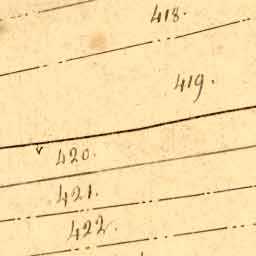 418.
419.
420.
421.
422.